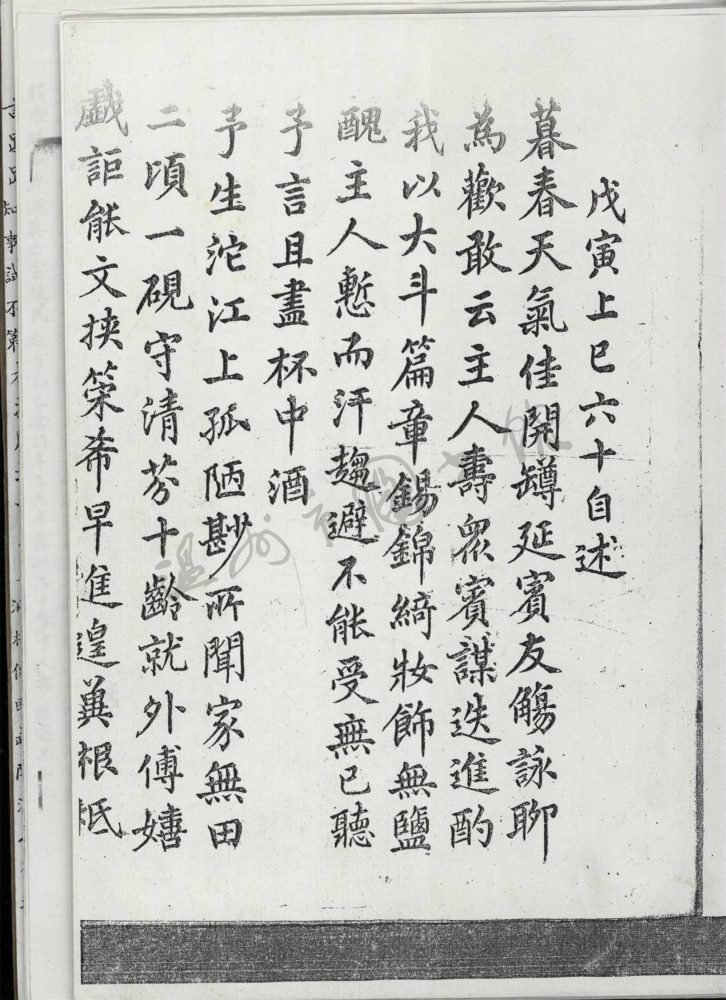 戊寅上巳六十自述
暮春天氣佳開罇延賓友觴詠聊
為歡敢云主人壽眾賓謀迭進酌
我以大斗篇章錫錦綺妝飾無鹽
醜主人慙而汗趨避不能受無已聽
予言且盡杯中酒
予生沱江上孤陋尠所聞家無田
二頃一硯守清芬十齡就外傅嬉
戲詎能文挾筴希早進遑冀根柢
溫州市圖書館